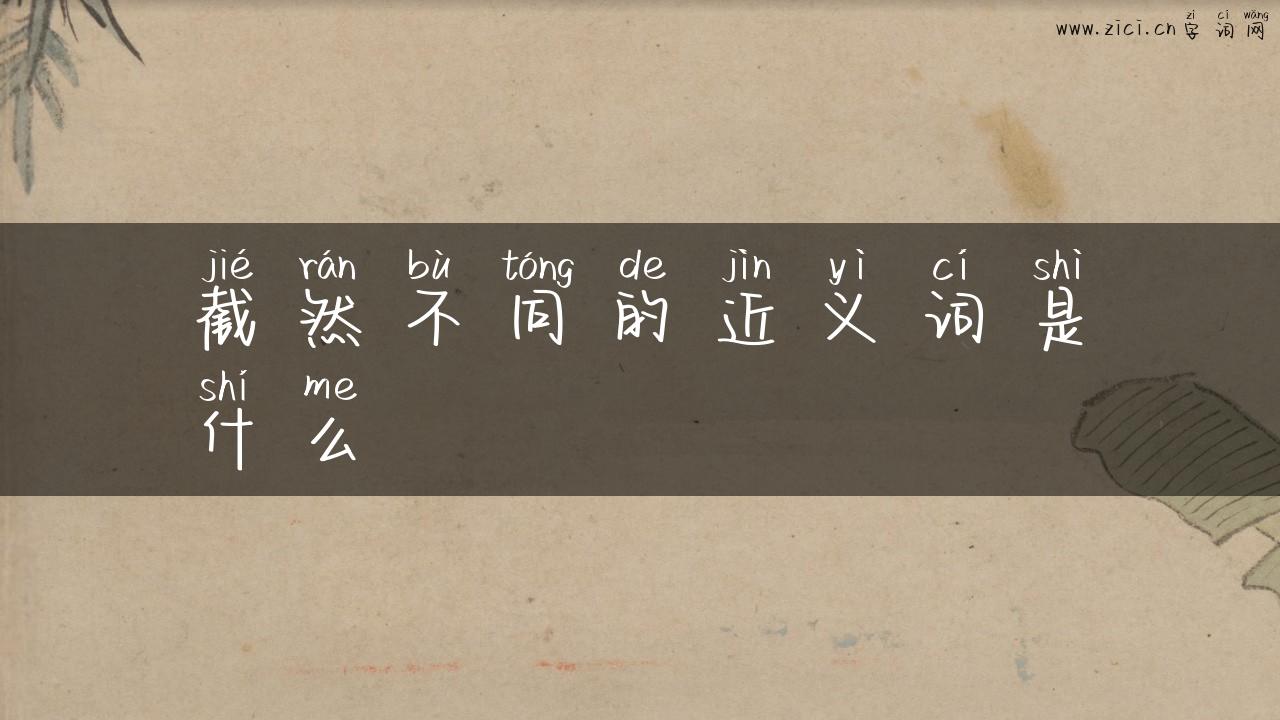 zì cí wǎng
www.zici.cn 字词网
jié rán bù tóng de jìn yì cí shì
截然不同的近义词是
shí me
什么